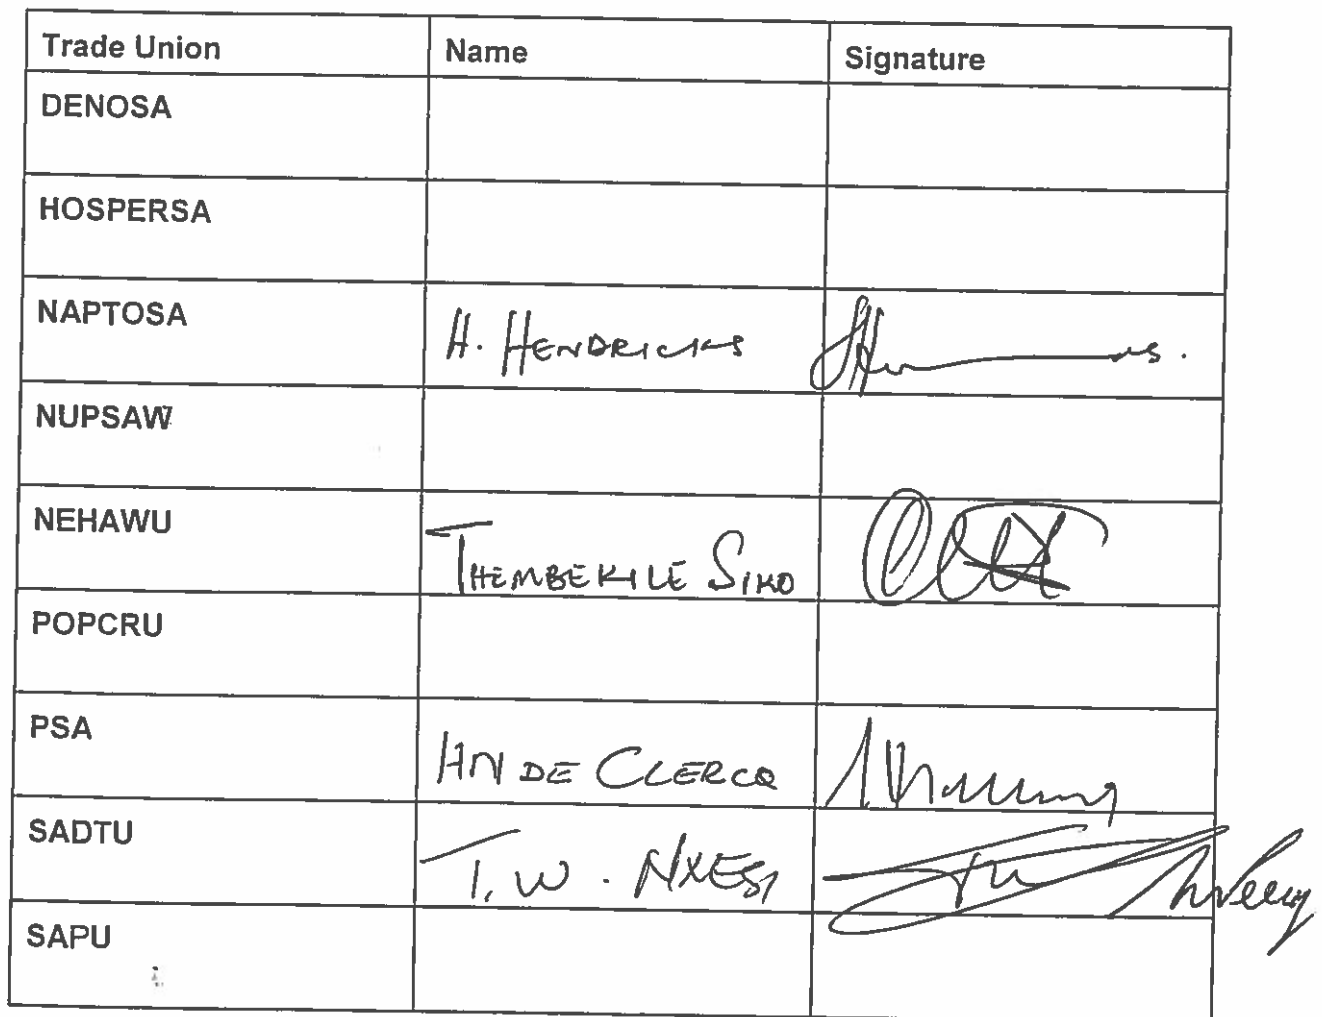 Trade Union Name Signature
DENOSA
HOSPERSA
NAPTOSA H. HENDRICKS
NUPSAW
NEHAWU THEMBEKILE
POPCRU
PSA HN DE CLERCQ
SADTU T.W. NXESI
SAPU